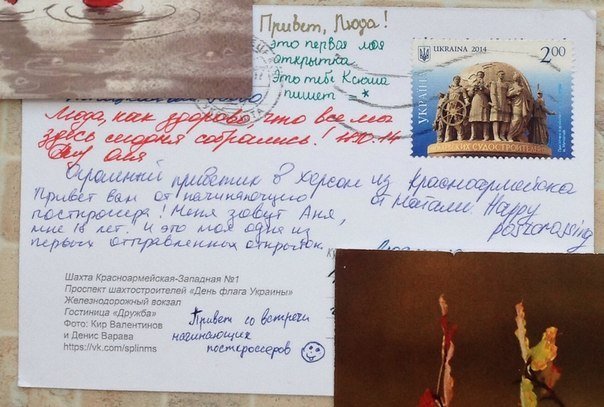 Привет, Люда!
это первая моя
открытка
Это тебе Ксюша
пишет =*
UKRAINA 2014
2.00
УКРАЇНА
Люда, как здорово, что все мы
здесь сегодня собрались!
Аля
Огромный приветик в Херсон из Красноармейска
от Натали Happy
postcrossing
Привет вам от начинающего
посткроссера! Меня зовут Аня,
мне 18 лет. И это моя одна из
первых отправленных открыток.
Шахта Красноармейская-Западная №1
Проспект шахтостроителей «День флага Украины»
Железнодорожный вокзал
Гостиница «Дружба»
Фото: Кир Валентинов
и Денис Варава
https://vk.com/splinms
Привет со встречи
начинающих
посткроссеров